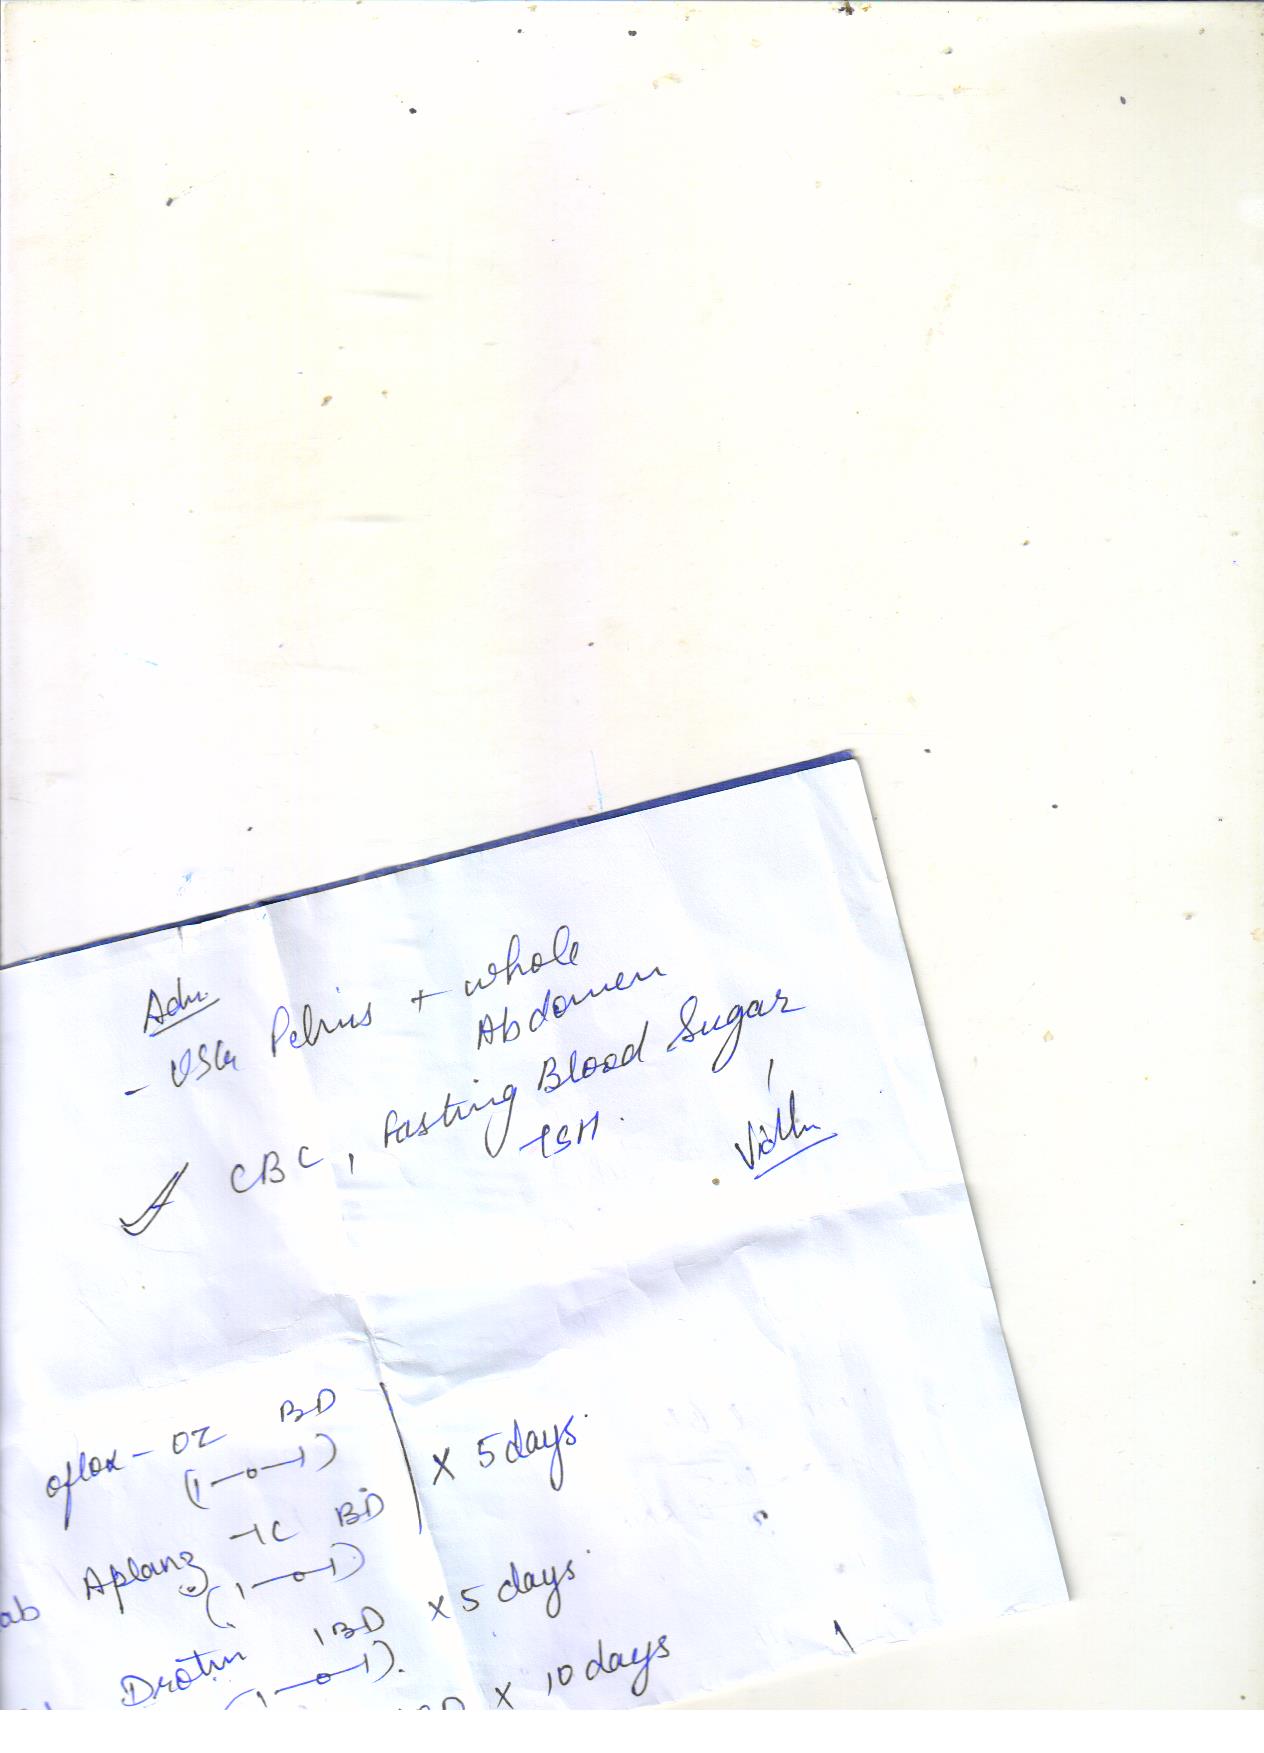 Adv.
- USG Pelvis + whole
Abdomen
CBC, Fasting Blood Sugar
TSH.
oflox-OZ BD
(1-0-1)
x 5 days
ab BD
(1-0-1)
Drotin 1BD x 5 days
(1-0-1).
x 10 days